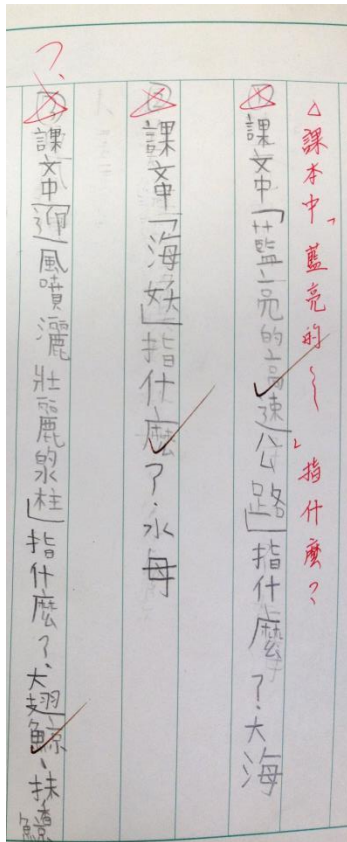 △課本中「藍亮的~」指什麼?
①課文中「藍亮的高速公路」指什麼?大海
②課文中「海妖」指什麼?水母
③課文中「迎風噴灑壯麗的水柱」指什麼?大翅鯨、抹香鯨